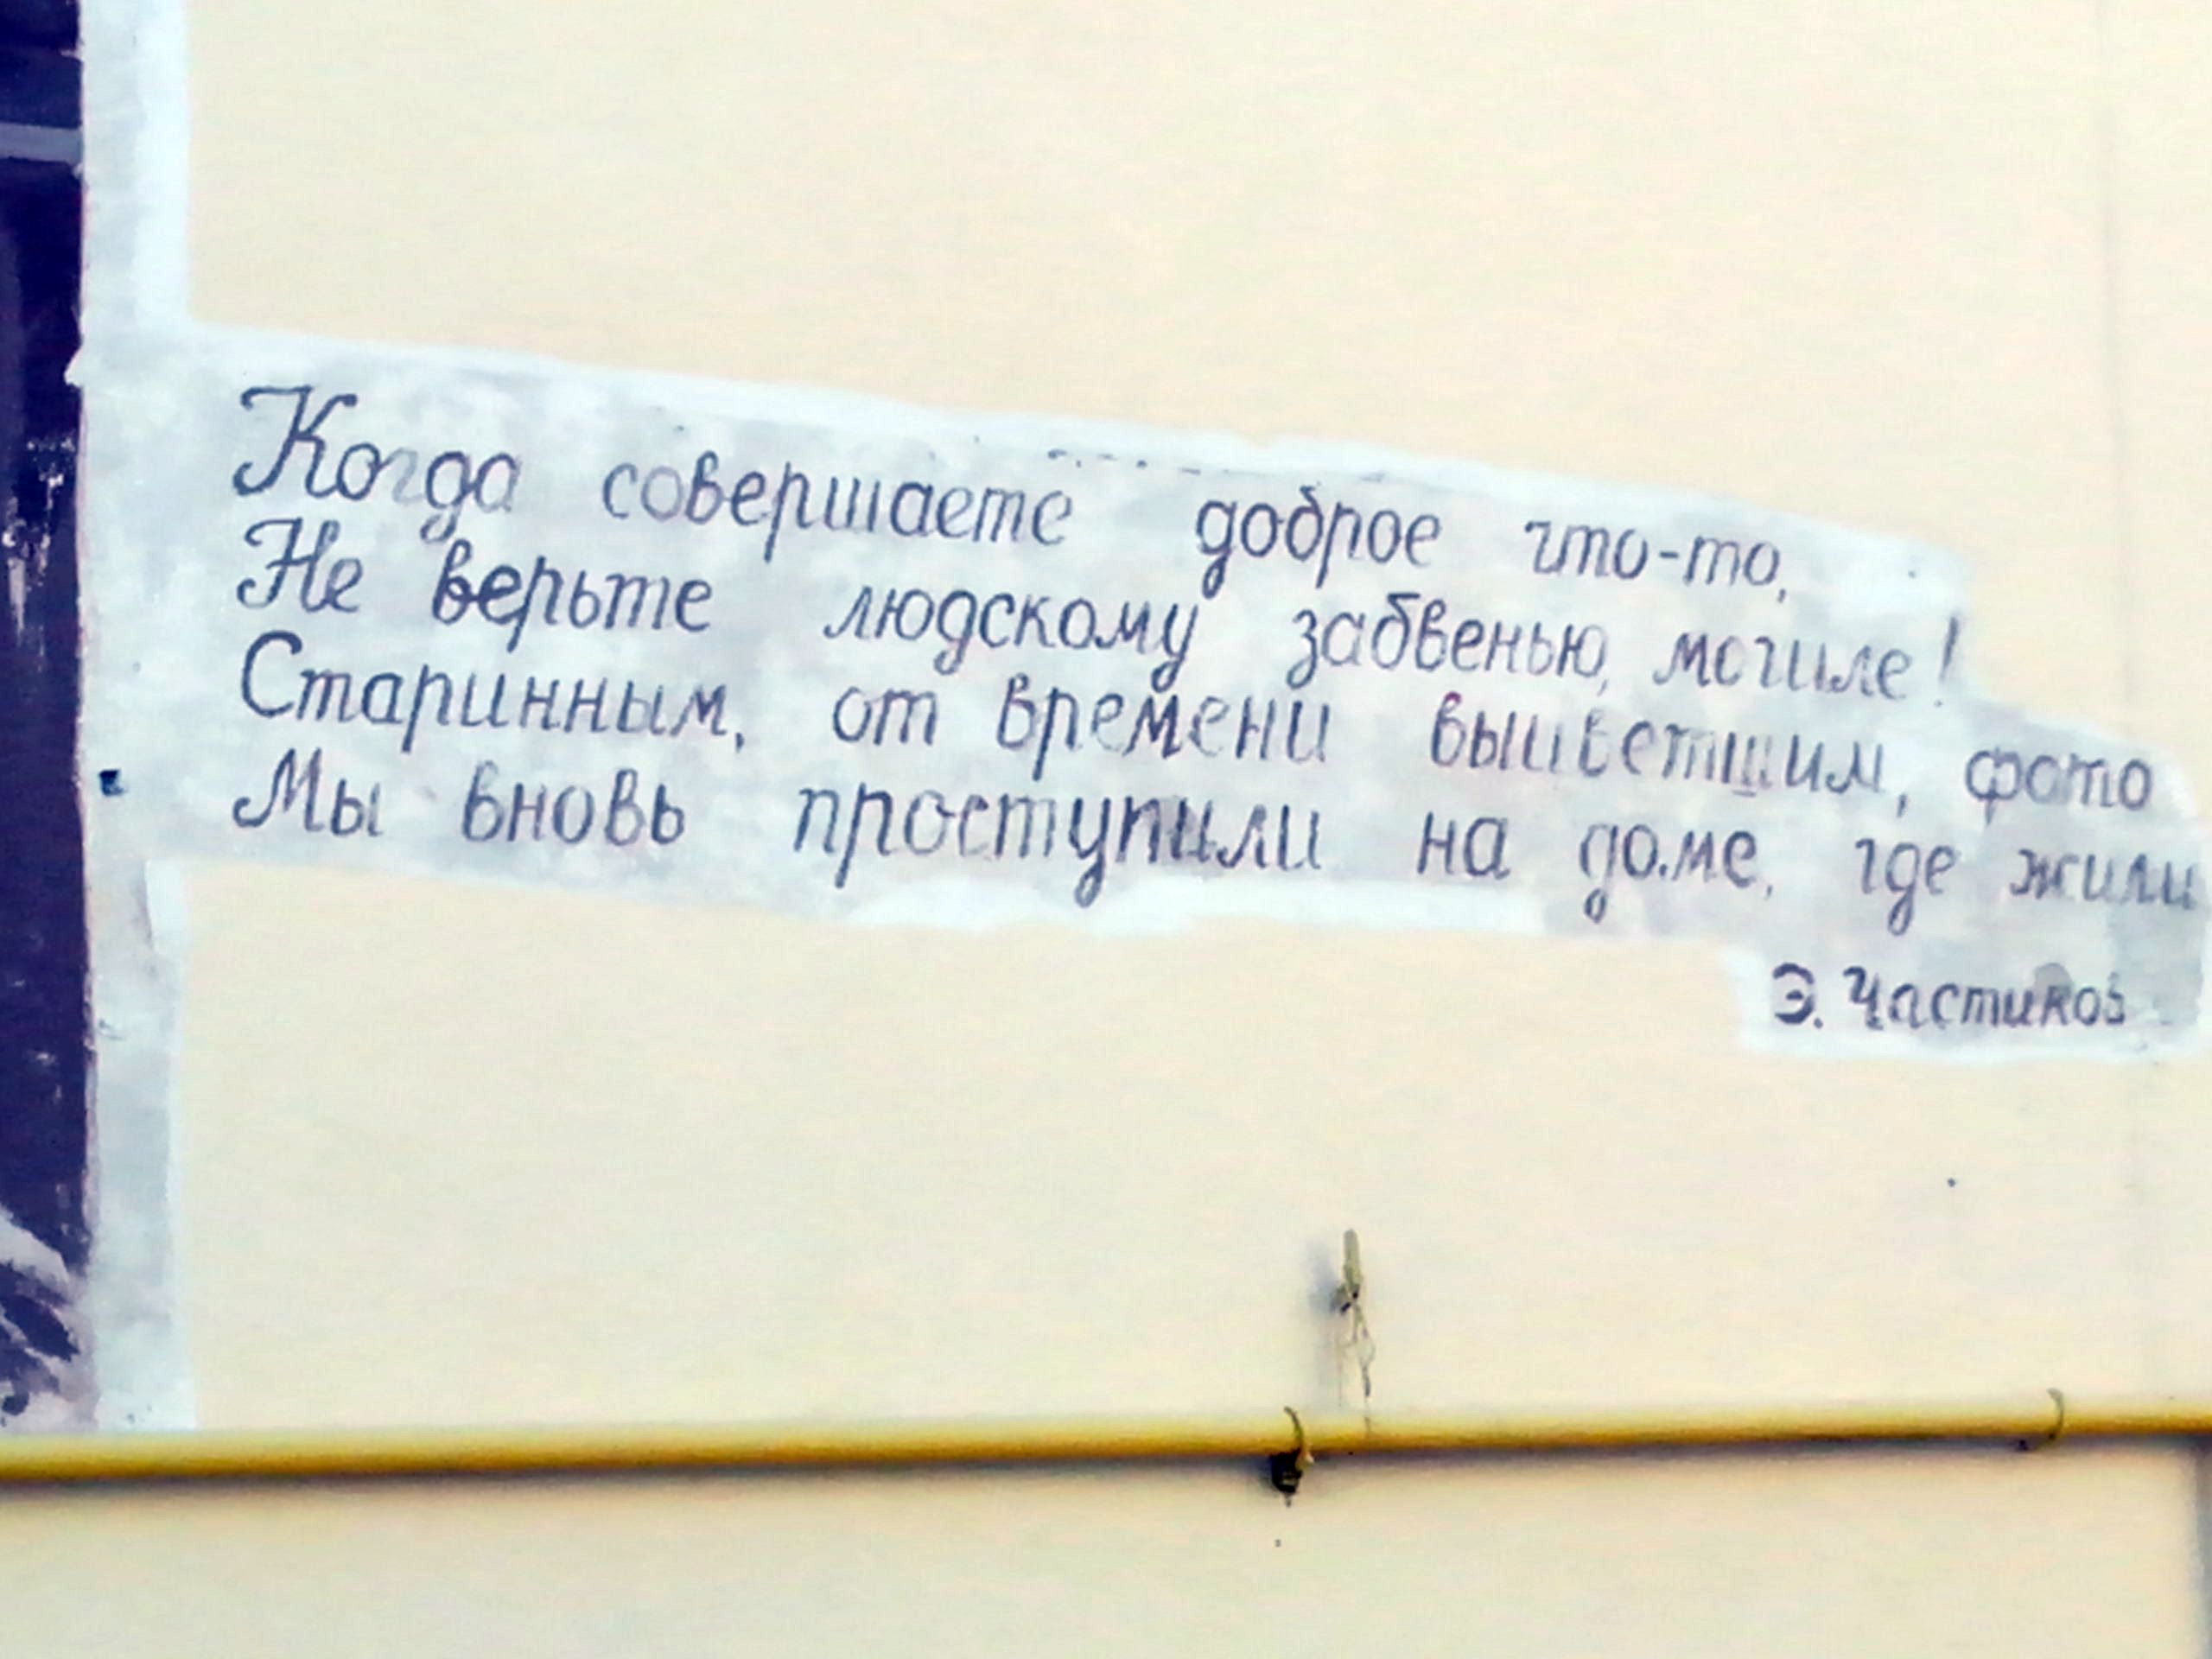 Когда совершаете доброе что-то,
Не верьте людскому забвенью, могиле!
Старинным, от времени выцветшим, фото
Мы вновь проступили на доме, где жили
Э. Частиков